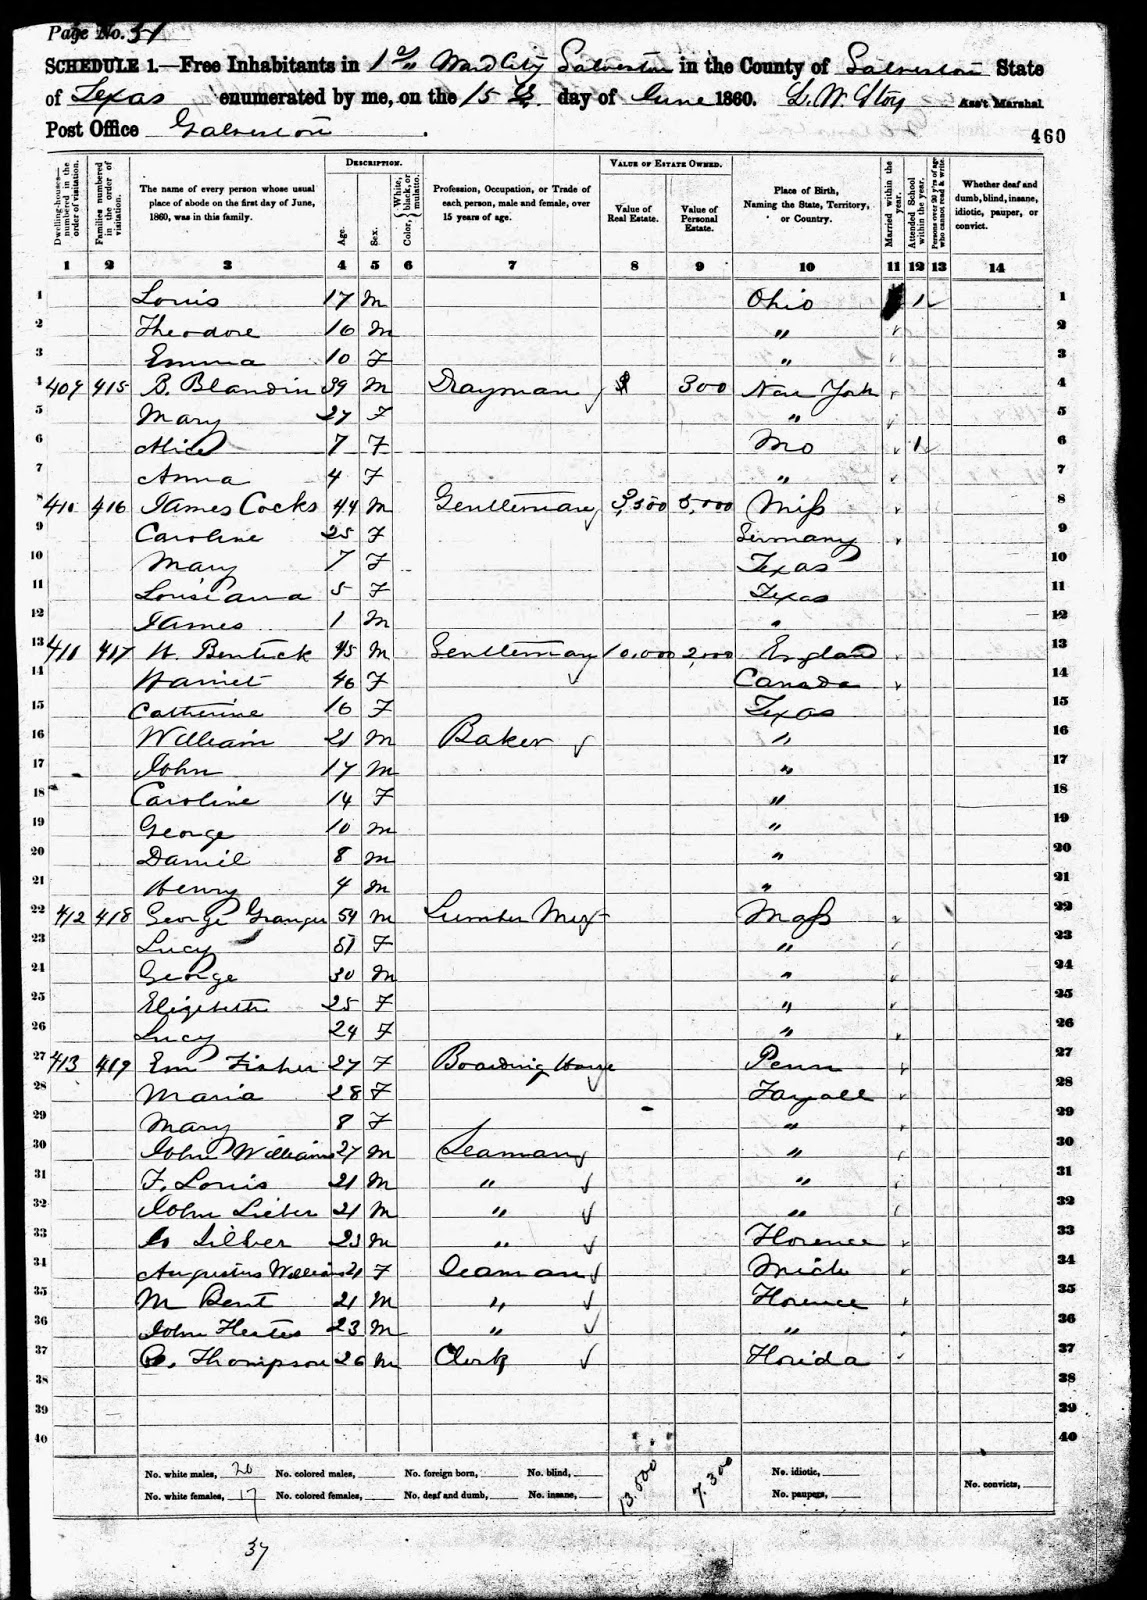 Page No. 51
SCHEDULE 1.—Free Inhabitants in 1st Ward City Galveston in the County of Galveston State
of Texas enumerated by me, on the 15 day of June 1860. Ass't Marshal.
Post Office Galveston .
460
Dwelling-houses—numbered in the order of visitation. Families numbered in the order of visitation. The name of every person whose usual place of abode on the first day of June, 1860, was in this family. DESCRIPTION. Age. Sex. Color, White, black, or mulatto. Profession, Occupation, or Trade of each person, male and female, over 15 years of age. VALUE OF ESTATE OWNED. Value of Real Estate. Value of Personal Estate. Place of Birth, Naming the State, Territory, or Country. Married within the year. Attended School within the year. Persons over 20 y'rs of age who cannot read & write. Whether deaf and dumb, blind, insane, idiotic, pauper, or convict.
1 2 3 4 5 6 7 8 9 10 11 12 13 14
1 Louis 17 M Ohio 1 1
2 Theodore 16 M " 2
3 Emma 10 F " 3
4 409 415 B. Blandin 39 M Drayman $ 300 New York 4
5 Mary 27 F " 5
6 Alice 7 F Mo 1 6
7 Anna 4 F " 7
8 410 416 James Cocks 44 M Gentleman 3,500 5,000 Miss 8
9 Caroline 25 F Germany 9
10 Mary 7 F Texas 10
11 Louisiana 5 F Texas 11
12 James 1 M " 12
13 411 417 W. Bentick 45 M Gentleman 10,000 2,000 England 13
14 Harriet 46 F Canada 14
15 Catherine 16 F Texas 15
16 William 21 M Baker " 16
17 John 17 M " 17
18 Caroline 14 F " 18
19 George 10 M " 19
20 Daniel 8 M " 20
21 Henry 4 M " 21
22 412 418 George Granger 54 M Lumber Mer Mass 22
23 Lucy 51 F " 23
24 George 30 M " 24
25 Elizabeth 25 F " 25
26 Lucy 24 F " 26
27 413 419 Em Fisher 27 F Boarding House Penn 27
28 Maria 28 F Fayall 28
29 Mary 8 F " 29
30 John Williams 27 M Seaman " 30
31 F. Louis 21 M " " 31
32 John Sieber 21 M " " 32
33 Silber 23 M " Florence 33
34 Augustus William 21 F Seaman Mich 34
35 M Bent 21 M " Florence 35
36 John 23 M " " 36
37 Thompson 26 M Clerk Florida 37
38 38
39 39
40 40
No. white males, 20 No. colored males, No. foreign born, No. blind, 13,500 7,300 No. idiotic,
No. white females, 17 No. colored females, No. deaf and dumb, No. insane, No. paupers, No. convicts,
37